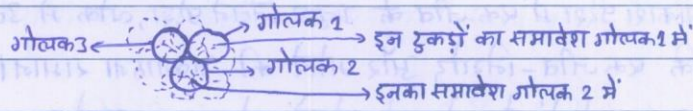 गोलक 1
गोलक3
इन टुकड़ों का समावेश गोलक1 में
गोलक 2
इनका समावेश गोलक 2 में